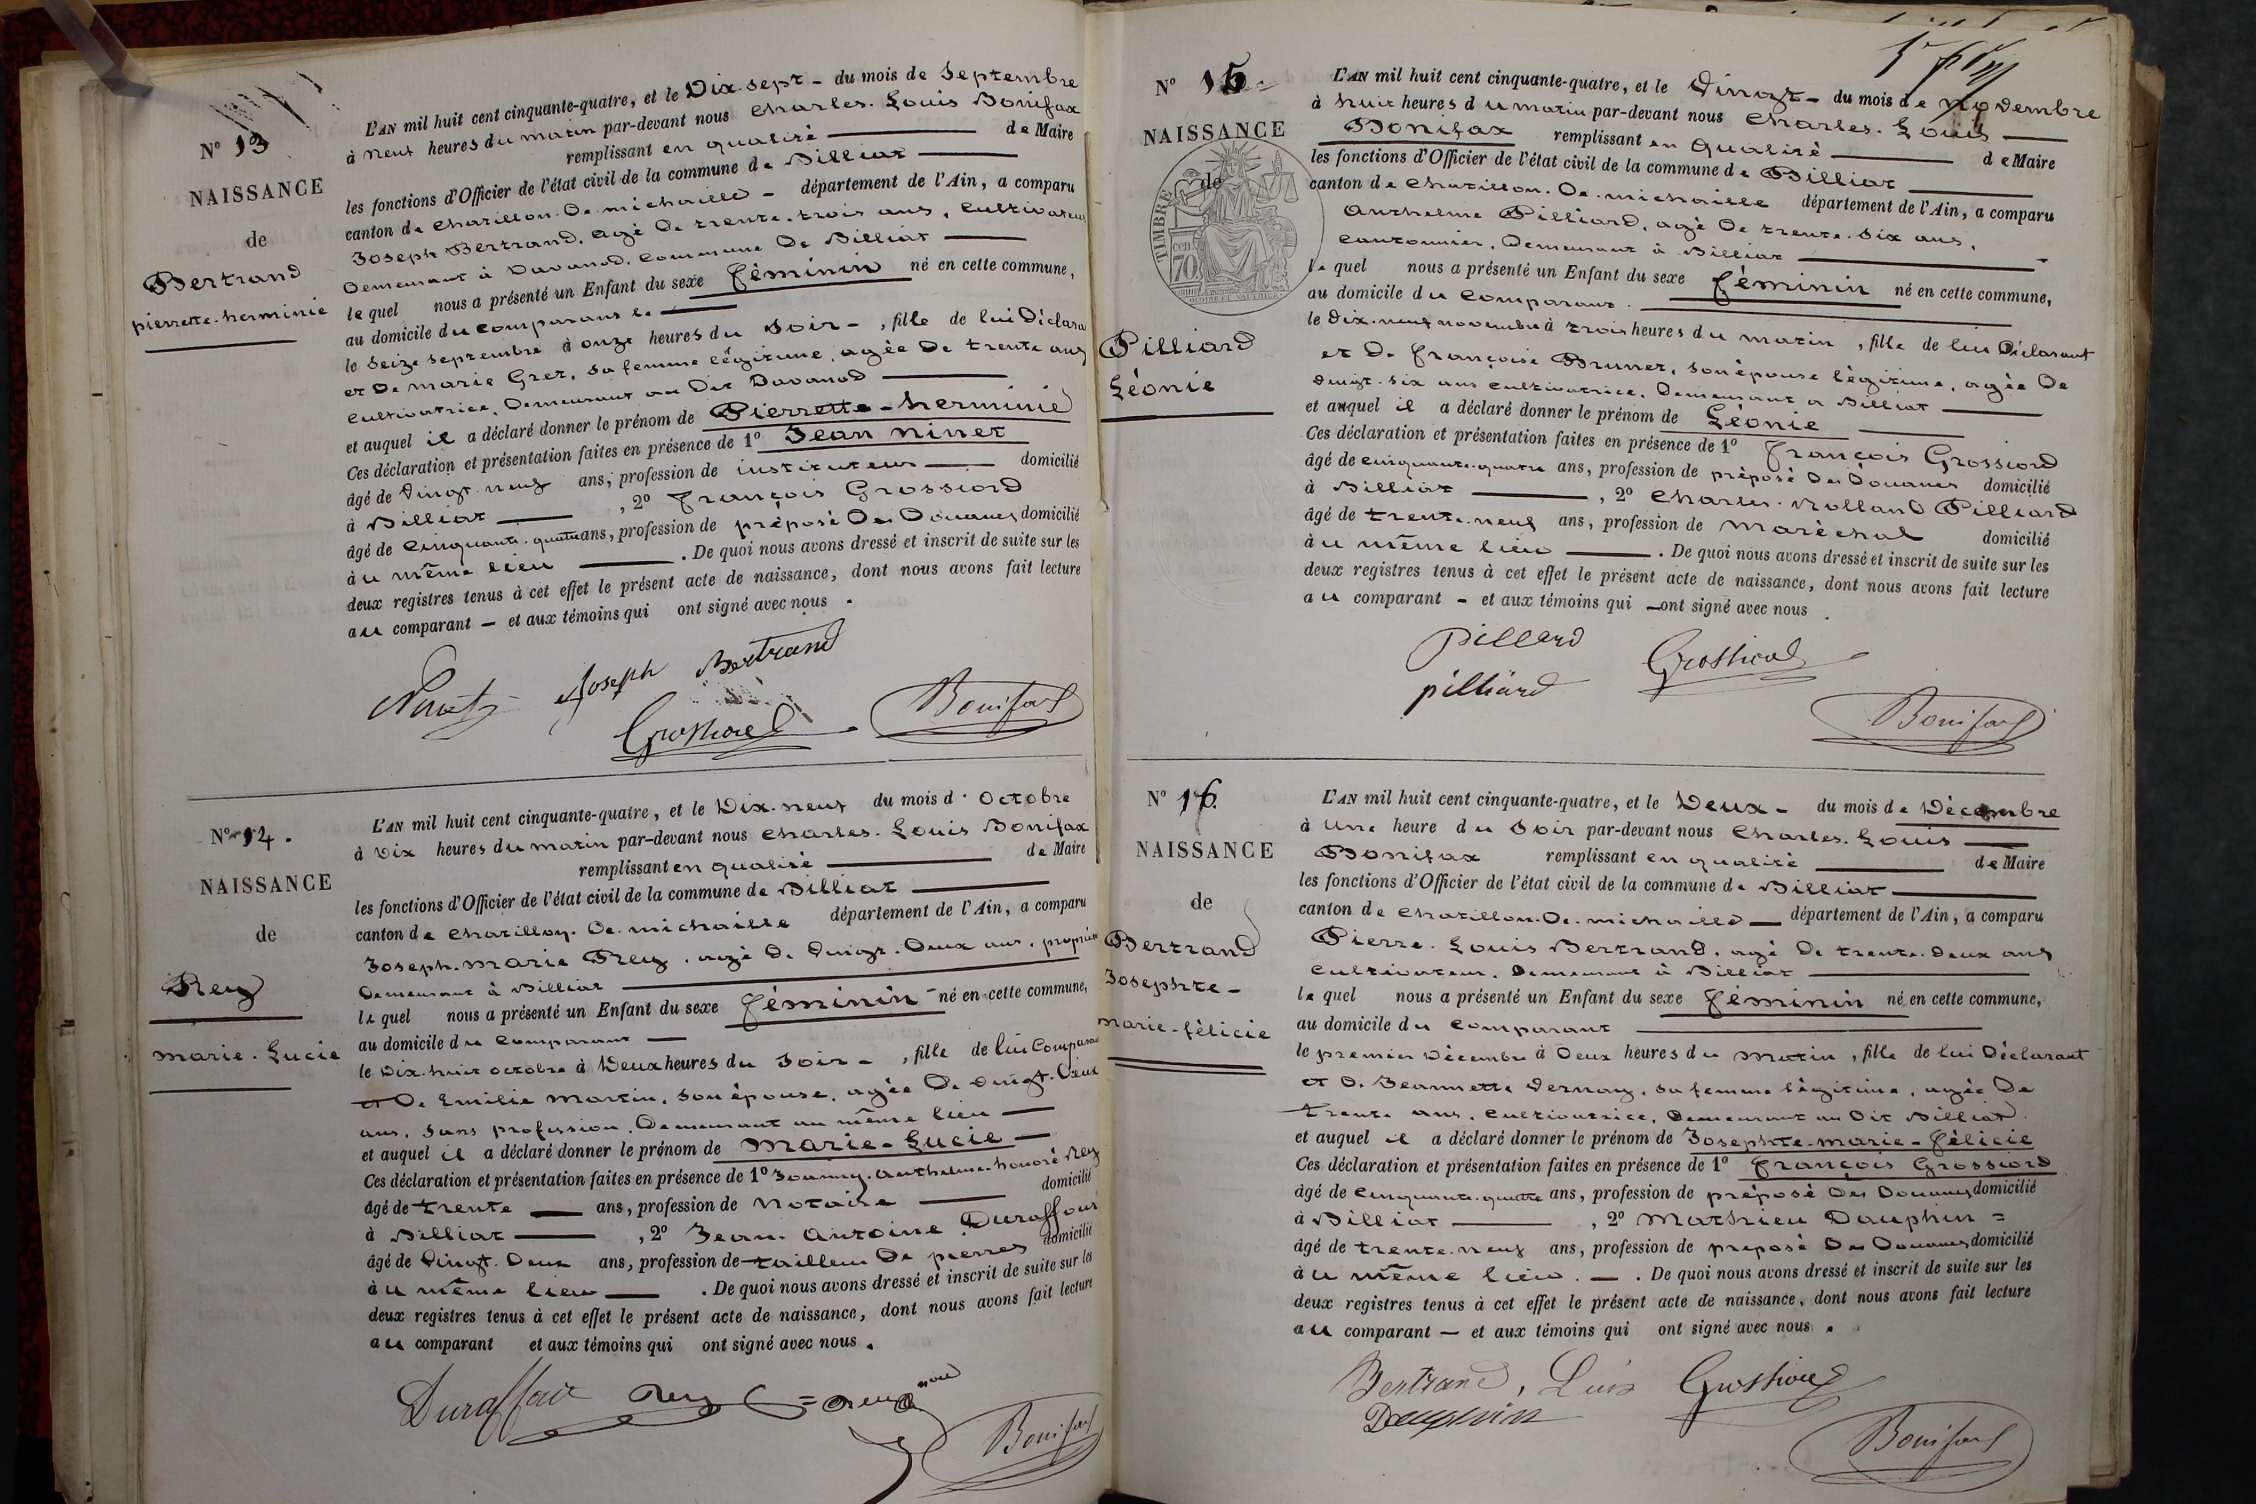 N° 13
NAISSANCE
de
Bertrand
pierrette-herminie
L'AN mil huit cent cinquante-quatre, et le Dix-sept - du mois de Septembre
à Neuf heures du matin par-devant nous Charles-Louis Bonifax
remplissant en qualité de Maire
les fonctions d'Officier de l'état civil de la commune de Billiat
canton de Chatillon-De-michaille - département de l'Ain, a comparu
Joseph Bertrand, agé De trente-trois ans, Cultivateur
Demeurant à Davanod, Commune De Billiat
lequel nous a présenté un Enfant du sexe féminin né en cette commune,
au domicile du comparant le
le Seize septembre à onze heures du Soir - , fille de lui Déclarant
et De marie Gret, sa femme légitime, agée De trente ans
Cultivatrice, Demeurant au Dit Davanod
et auquel il a déclaré donner le prénom de Pierrette-herminie
Ces déclaration et présentation faites en présence de 1° Jean Ninet
âgé de Vingt-neuf ans, profession de instituteur domicilié
à Billiat , 2° François Grossiord
âgé de Cinquante-quatre ans, profession de préposé Des Douanes domicilié
au même lieu . De quoi nous avons dressé et inscrit de suite sur les
deux registres tenus à cet effet le présent acte de naissance, dont nous avons fait lecture
au comparant - et aux témoins qui ont signé avec nous .
Joseph Bertrand
Grossiord Bonifax
N° 14.
NAISSANCE
de
Rey
marie-Lucie
L'AN mil huit cent cinquante-quatre, et le Dix-neuf du mois d'Octobre
à Dix heures du matin par-devant nous Charles-Louis Bonifax
remplissant en qualité de Maire
les fonctions d'Officier de l'état civil de la commune de Billiat
canton de Chatillon-De-michaille département de l'Ain, a comparu
Joseph-marie Rey, agé De Vingt-Deux ans,
Demeurant à Billiat
lequel nous a présenté un Enfant du sexe féminin né en cette commune,
au domicile du Comparant
le Dix-huit octobre à Deux heures du Soir - , fille de lui
et De Emilie Martin, son épouse, agée De Vingt-Deux
ans, Sans profession, Demeurant au même lieu
et auquel il a déclaré donner le prénom de Marie-Lucie
Ces déclaration et présentation faites en présence de 1° anthelme-honoré Rey
âgé de trente ans, profession de Notaire domicilié
à Billiat , 2° Jean-Antoine Duraffour
âgé de Vingt-Deux ans, profession de tailleur De pierres domicilié
au même lieu . De quoi nous avons dressé et inscrit de suite sur les
deux registres tenus à cet effet le présent acte de naissance, dont nous avons fait lecture
au comparant et aux témoins qui ont signé avec nous .
Rey
Bonifax
N° 15.
NAISSANCE
de
TIMBRE
70 cen.
Pilliard
Léonie
L'AN mil huit cent cinquante-quatre, et le Vingt - du mois de Novembre
à huit heures du matin par-devant nous Charles-Louis
Bonifax remplissant en qualité de Maire
les fonctions d'Officier de l'état civil de la commune de Billiat
canton de Chatillon-De-michaille département de l'Ain, a comparu
Anthelme Pilliard, agé De trente-six ans,
Cantonnier, Demeurant à Billiat
lequel nous a présenté un Enfant du sexe féminin né en cette commune,
au domicile du Comparant.
le Dix-neuf novembre à trois heures du matin , fille de lui Déclarant
et De Françoise Brunet, son épouse légitime, agée De
Vingt-six ans Cultivatrice, Demeurant à Billiat
et auquel il a déclaré donner le prénom de Léonie
Ces déclaration et présentation faites en présence de 1° François Grossiord
âgé de Cinquante-quatre ans, profession de préposé Des Douanes domicilié
à Billiat , 2° Charles-Rolland Pilliard
âgé de trente-neuf ans, profession de Maréchal domicilié
au même lieu . De quoi nous avons dressé et inscrit de suite sur les
deux registres tenus à cet effet le présent acte de naissance, dont nous avons fait lecture
au comparant - et aux témoins qui ont signé avec nous .
pillard Grossiord
pilliard
Bonifax
N° 16.
NAISSANCE
de
Bertrand
Josephte-
marie-félicie
L'AN mil huit cent cinquante-quatre, et le Deux - du mois de Décembre
à Une heure du Soir par-devant nous Charles-Louis
Bonifax remplissant en qualité de Maire
les fonctions d'Officier de l'état civil de la commune de Billiat
canton de Chatillon-De-michaille département de l'Ain, a comparu
Pierre-Louis Bertrand, agé De trente-Deux ans
Cultivateur, Demeurant à Billiat
lequel nous a présenté un Enfant du sexe féminin né en cette commune,
au domicile du Comparant
le premier Décembre à Deux heures du Matin , fille de lui Déclarant
et De Jeannette Vernay, sa femme légitime, agée De
trente ans, Cultivatrice, Demeurant au Dit Billiat
et auquel il a déclaré donner le prénom de Josephte-marie-félicie
Ces déclaration et présentation faites en présence de 1° François Grossiord
âgé de Cinquante-quatre ans, profession de préposé Des Douanes domicilié
à Billiat , 2° Mathieu Dauphin =
âgé de trente-neuf ans, profession de préposé Des Douanes domicilié
au même lieu . De quoi nous avons dressé et inscrit de suite sur les
deux registres tenus à cet effet le présent acte de naissance, dont nous avons fait lecture
au comparant - et aux témoins qui ont signé avec nous .
Bertrand, Luis Grossiord
Dauphin
Bonifax